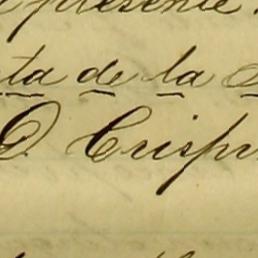 presente
ta de la
D. Crispi